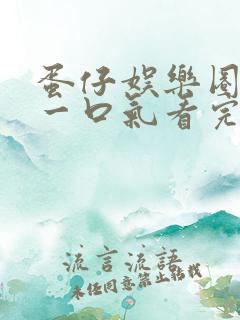 蛋仔娛樂園
一口氣看完
流言流語
未經同意禁止轉載